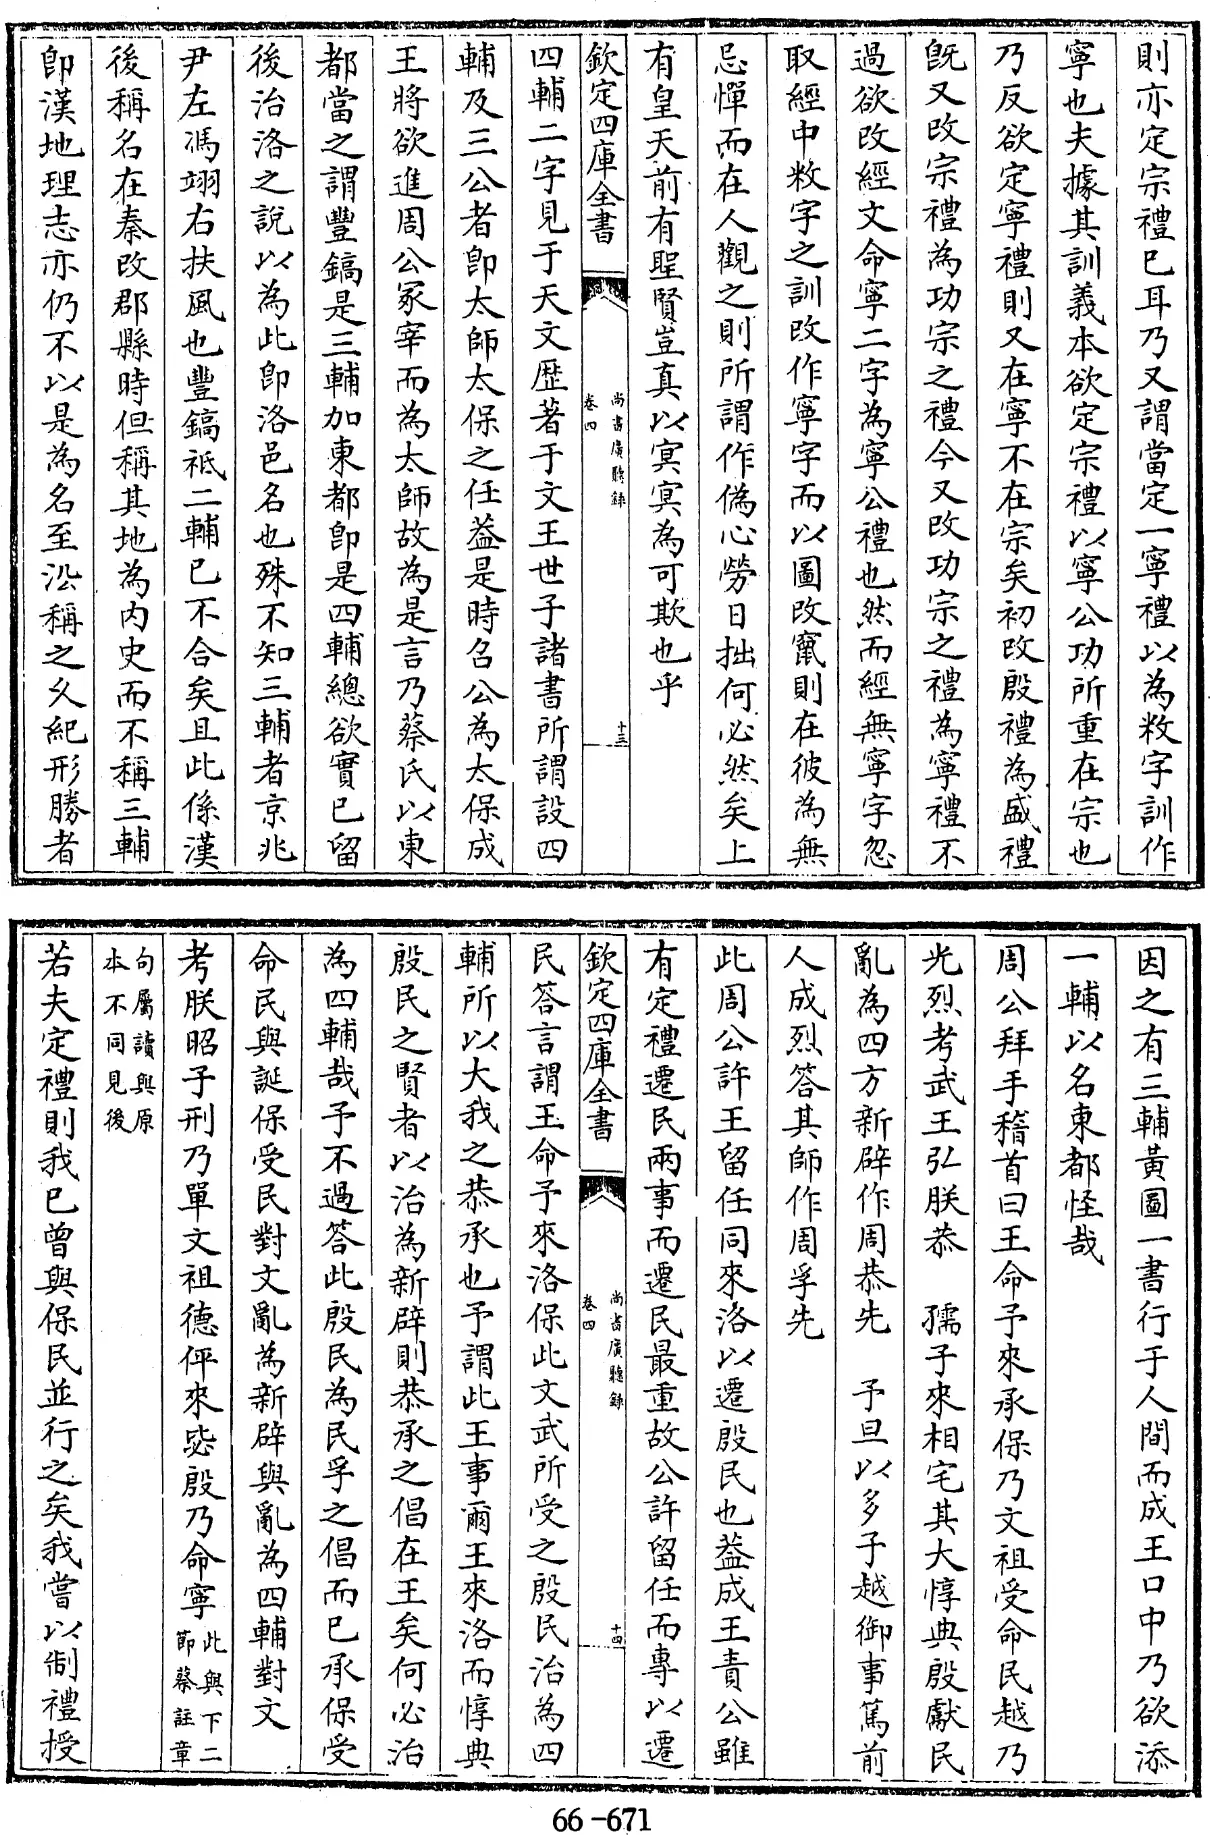 則亦定宗禮已耳乃又謂當定一寧禮以為敉字訓作
寧也夫據其訓義本欲定宗禮以寧公功所重在宗也
乃反欲定寧禮則又在寧不在宗矣初改殷禮為盛禮
旣又改宗禮為功宗之禮今又改功宗之禮為寧禮不
過欲改經文命寧二字為寧公禮也然而經無寧字忽
取經中敉字之訓改作寧字而以圖改竄則在彼為無
忌憚而在人觀之則所謂作偽心勞日拙何必然矣上
有皇天前有聖賢豈真以冥冥為可欺也乎
欽定四庫全書
尚書廣聽錄
卷四
十三
四輔二字見于天文歷著于文王世子諸書所謂設四
輔及三公者卽太師太保之任葢是時召公為太保成
王將欲進周公冢宰而為太師故為是言乃蔡氏以東
都當之謂豐鎬是三輔加東都卽是四輔總欲實已留
後治洛之說以為此卽洛邑名也殊不知三輔者京兆
尹左馮翊右扶風也豐鎬祗二輔已不合矣且此係漢
後稱名在秦改郡縣時但稱其地為內史而不稱三輔
卽漢地理志亦仍不以是為名至沿稱之久紀形勝者
因之有三輔黃圖一書行于人間而成王口中乃欲添
一輔以名東都怪哉
周公拜手稽首曰王命予來承保乃文祖受命民越乃
光烈考武王弘朕恭 孺子來相宅其大惇典殷獻民
亂為四方新辟作周恭先 予旦以多子越御事篤前
人成烈答其師作周孚先
此周公許王留任同來洛以遷殷民也葢成王責公雖
有定禮遷民兩事而遷民最重故公許留任而專以遷
欽定四庫全書
尚書廣聽錄
卷四
十四
民答言謂王命予來洛保此文武所受之殷民治為四
輔所以大我之恭承也予謂此王事爾王來洛而惇典
殷民之賢者以治為新辟則恭承之倡在王矣何必治
為四輔哉予不過答此殷民為民孚之倡而已承保受
命民與誕保受民對文亂為新辟與亂為四輔對文
考朕昭子刑乃單文祖德伻來毖殷乃命寧此與下二節蔡註章
句屬讀與原本不同見後
若夫定禮則我已曾與保民並行之矣我嘗以制禮授
66-671